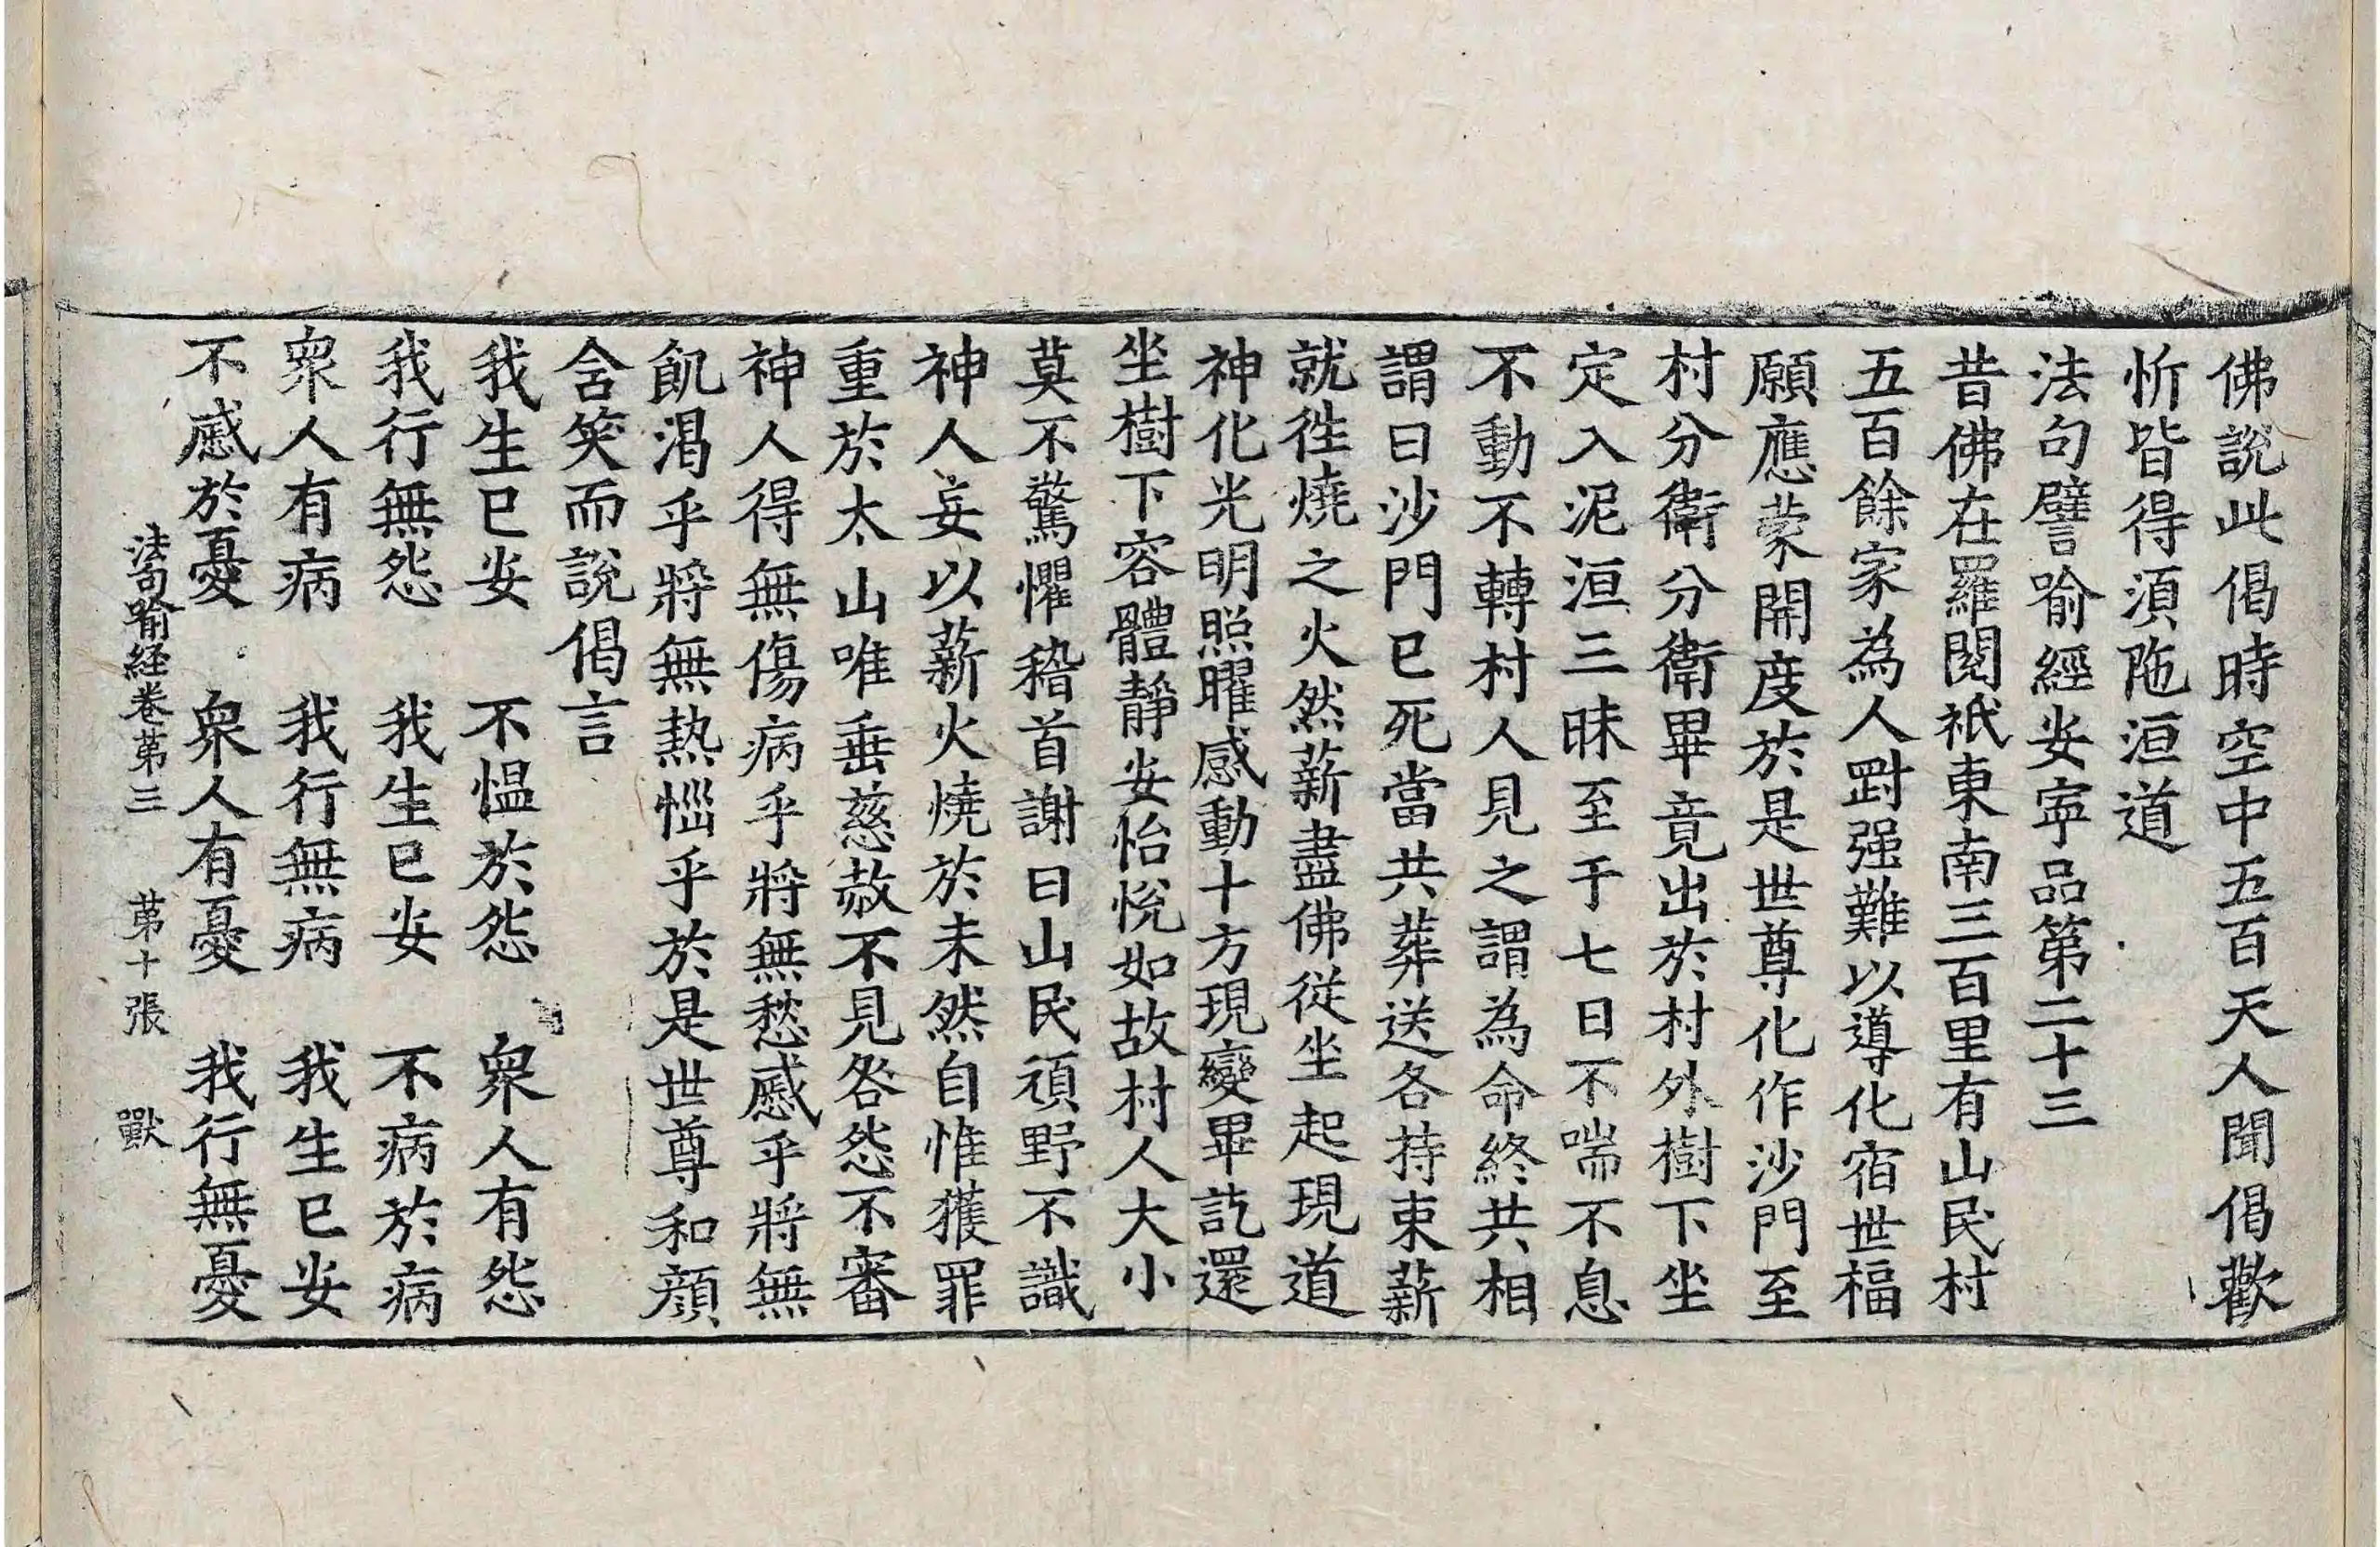 佛說此偈時空中五百天人聞偈歡
忻皆得湏陁洹道
法句譬喻經安寧品第二十三
昔佛在羅閱祇東南三百里有山民村
五百餘家為人㓻强難以導化宿世福
願應蒙開度於是世尊化作沙門至
村分衛分衛畢竟出於村外樹下坐
定入泥洹三昧至于七日不喘不息
不動不轉村人見之謂為命終共相
謂曰沙門已死當共葬送各持束薪
就徃燒之火然薪盡佛從坐起現道
神化光明照曜感動十方現變畢訖還
坐樹下容體靜安怡悅如故村人大小
莫不驚懼稽首謝曰山民頑野不識
神人妄以薪火燒於未然自惟獲罪
重於太山唯垂慈赦不見咎怨不審
神人得無傷病乎將無愁慼乎將無
飢渴乎將無熱惱乎於是世尊和顔
含笑而說偈言
我生已安　不愠於怨　衆人有怨
我行無怨　我生已安　不病於病
衆人有病　我行無病　我生已安
不慼於憂　衆人有憂　我行無憂
法句喻経卷苐三　苐十張　獸